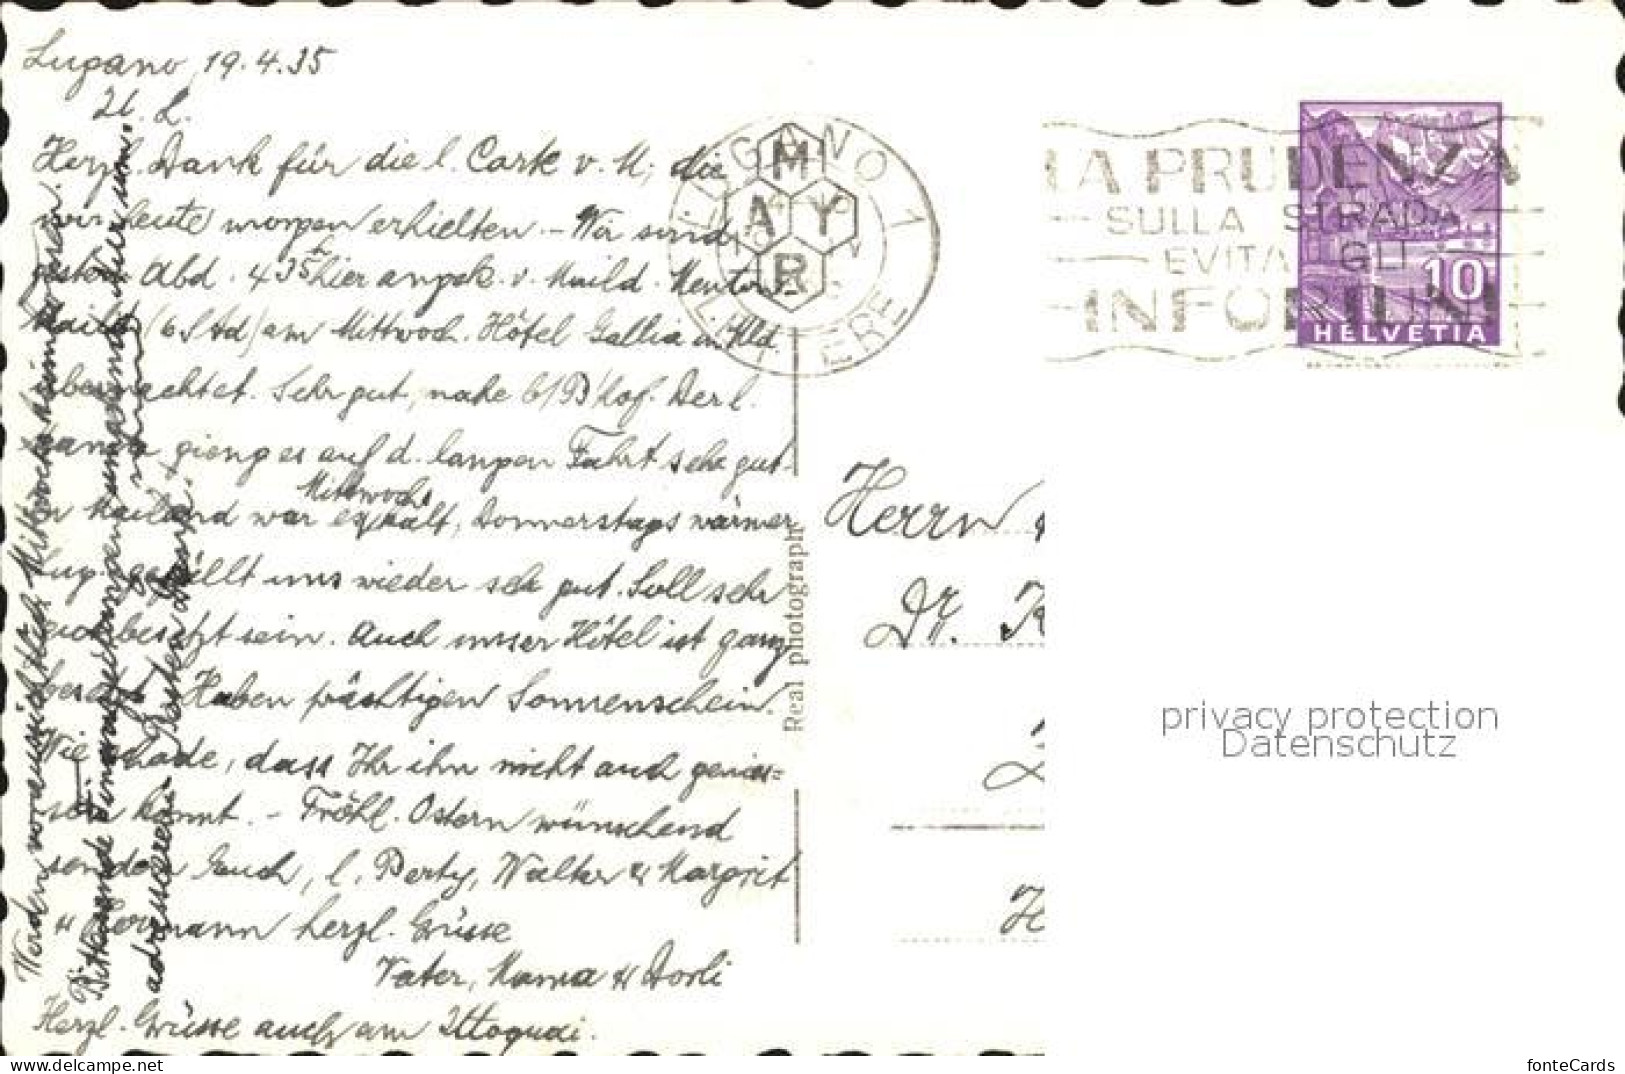 Lugano, 19.4.35
Herzl. Dank für die l. Carte v. M, die
wir heute morgen erhielten. - Wir sind
gestern Abd. 4 35 h hier angek. v. Maild. Mentone-
Mailand (6 Std) am Mittwoch. Hôtel Gallia in Mld.
übernachtet. Sehr gut, nahe b/Bhof. Der l.
Mama gieng es auf d. langen Fahrt sehr gut.
In Mailand war es Mittwochs kalt, Donnerstags wärmer
Lug. gefällt uns wieder sehr gut. Soll sehr
besetzt sein. Auch unser Hôtel ist ganz
besetzt. Haben prächtigen Sonnenschein.
Wie schade, dass Ihr ihn nicht auch genies-
sen könnt. - Fröhl. Ostern wünschend
senden Euch, l. Berty, Walter & Margrit
& Hermann herzl. Grüsse
Vater, Mama & Dorli
Herzl. Grüsse auch am Utoquai.
Werden voraussichtlich Mittwochs
Bitte
adressieren
LUGANO 1
M
A Y
R
LA PRUDENZA
SULLA STRADA
EVITA GLI
INFORTUNI
10
HELVETIA
Real photograph
Herrn
Dr.
privacy protection
Datenschutz
www.delcampe.net
fonteCards